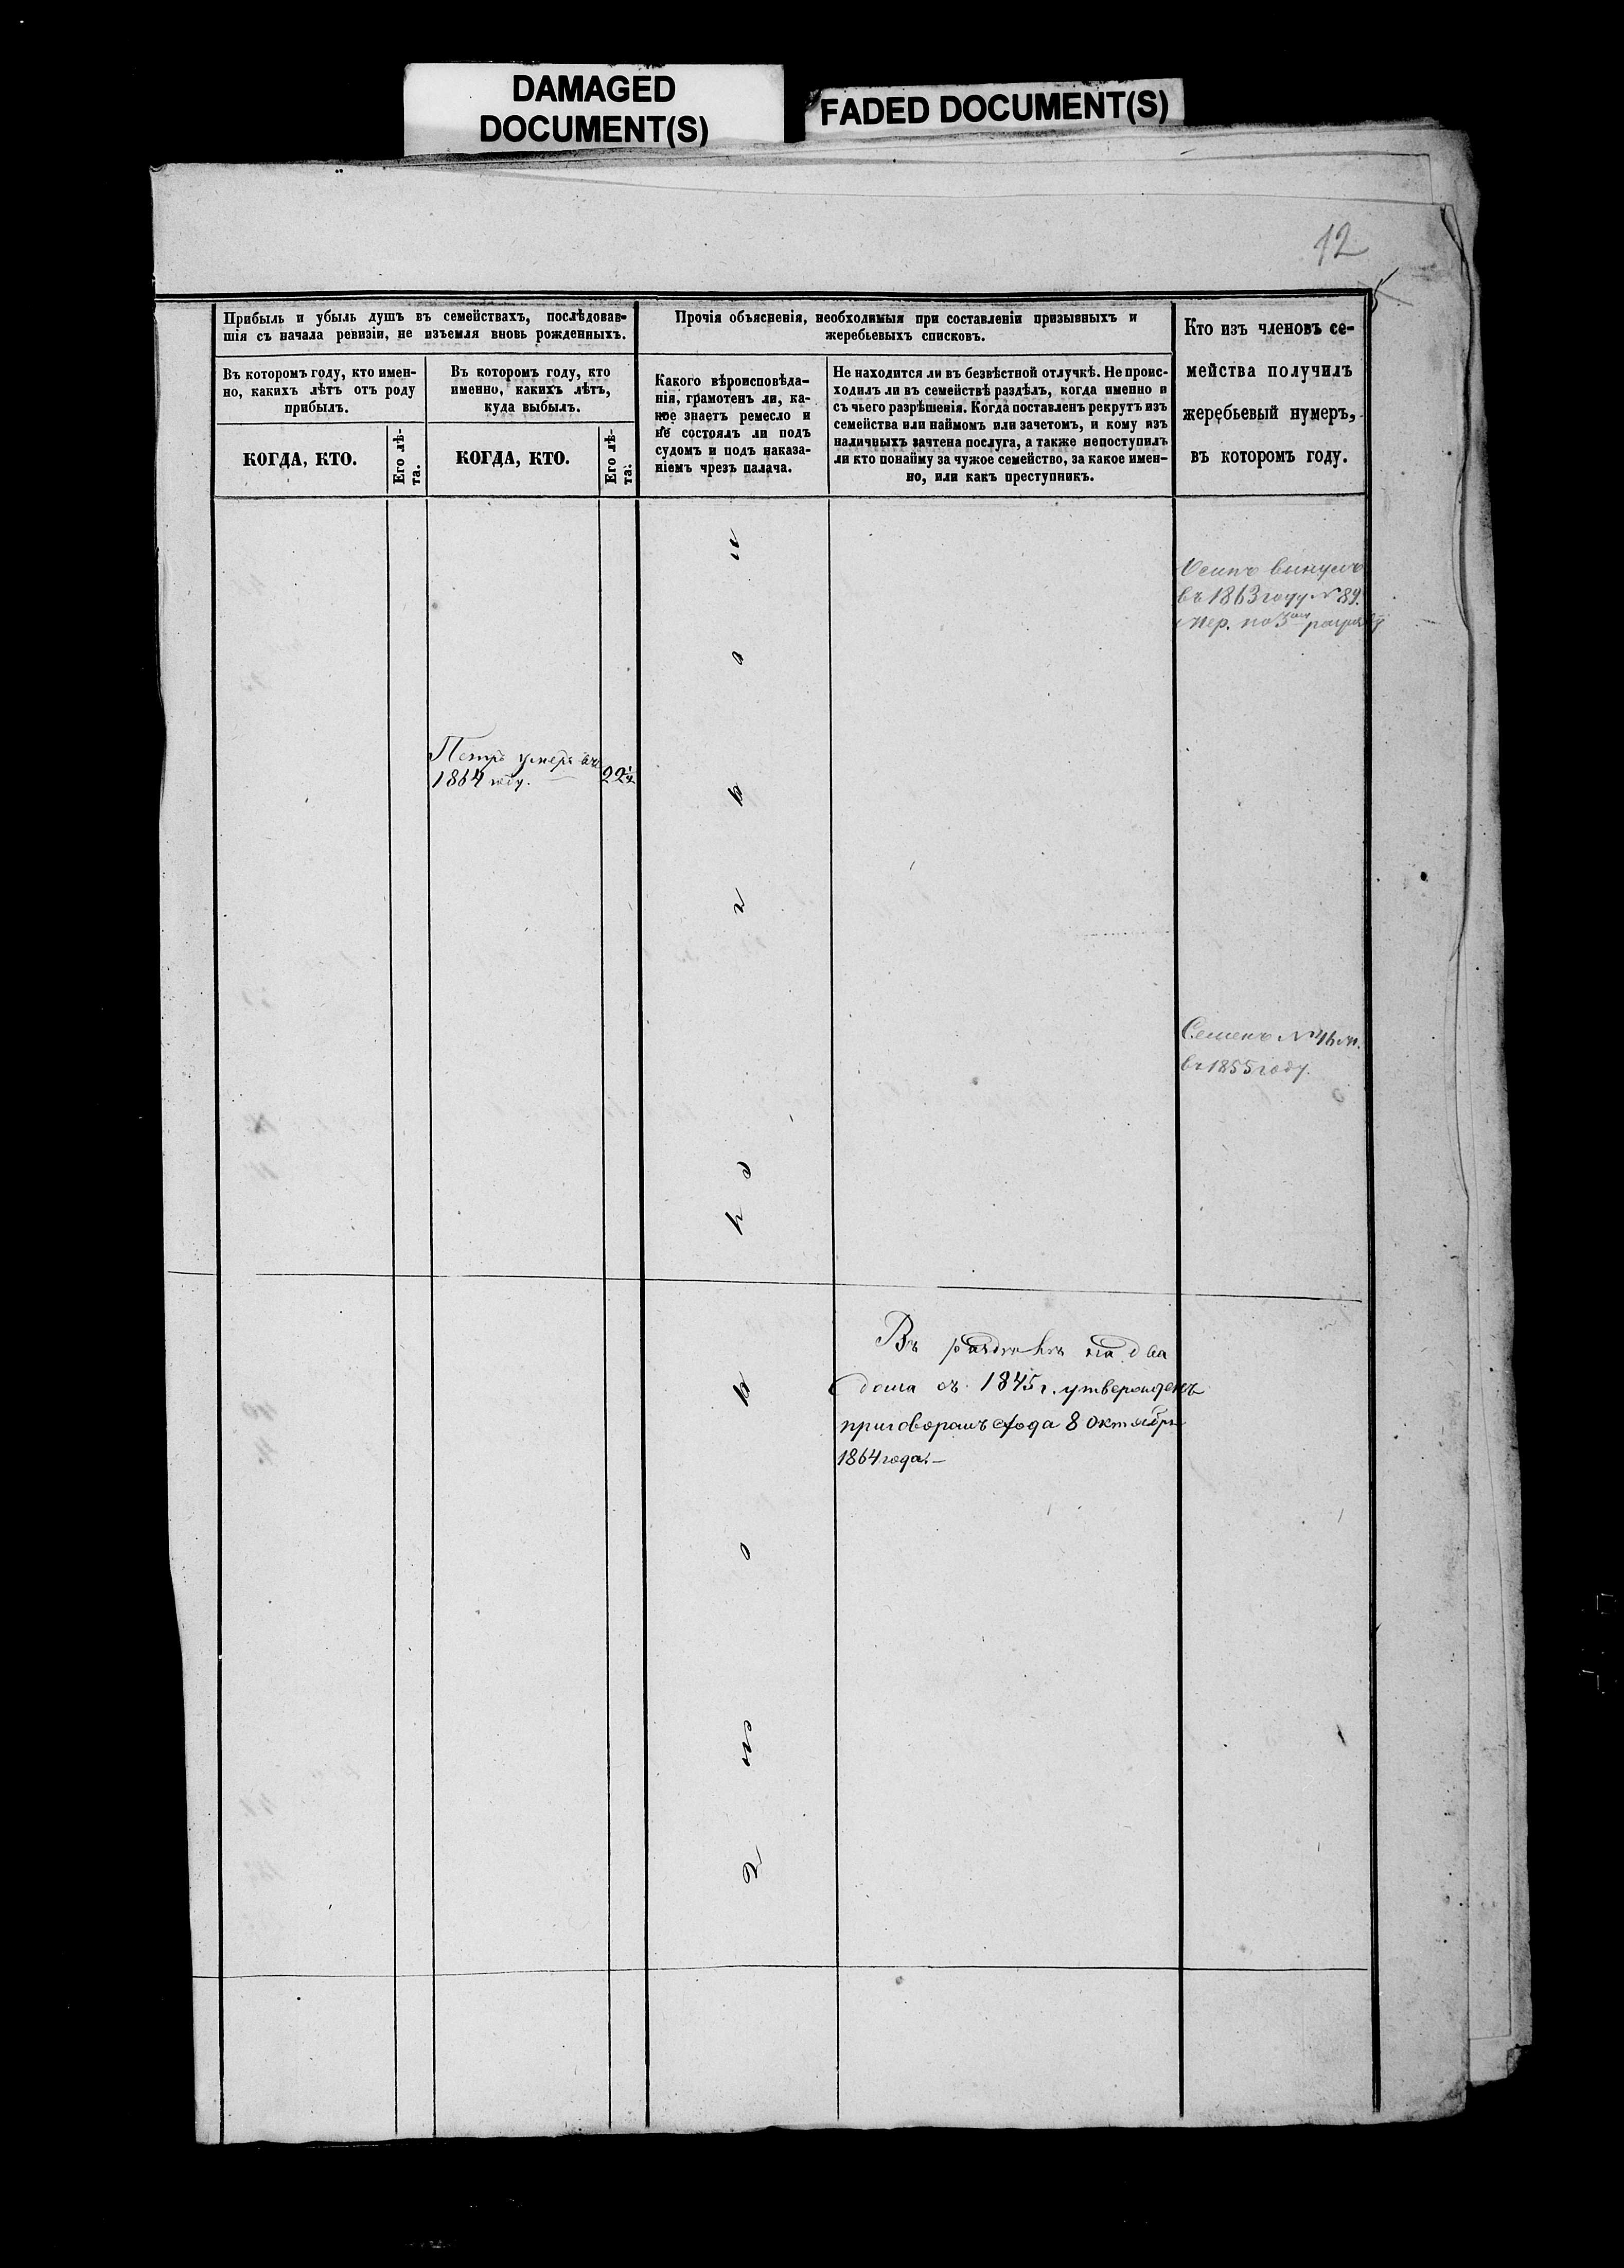 DAMAGED
DOCUMENT(S)
FADED DOCUMENT(S)
12
Прибыль и убыль душъ въ семействахъ, послѣдовав-
шія съ начала ревизіи, не изъемля вновь рожденныхъ.
Прочія объясненія, необходимыя при составленіи призывныхъ и
жеребьевыхъ списковъ.
Кто изъ членовъ се-
мейства получилъ
жеребьевый нумеръ,
въ которомъ году.
Въ которомъ году, кто имен-
но, какихъ лѣтъ отъ роду
прибылъ.
Въ которомъ году, кто
именно, какихъ лѣтъ,
куда выбылъ.
Какого вѣроисповѣда-
нія, грамотенъ ли, ка-
кое знаетъ ремесло и
не состоялъ ли подъ
судомъ и подъ наказа-
ніемъ чрезъ палача.
Не находится ли въ безвѣстной отлучкѣ. Не проис-
ходилъ ли въ семействѣ раздѣлъ, когда именно и
съ чьего разрѣшенія. Когда поставленъ рекрутъ изъ
семейства или наймомъ или зачетомъ, и кому изъ
наличныхъ зачтена послуга, а также непоступилъ
ли кто понайму за чужое семейство, за какое имен-
но, или какъ преступникъ.
КОГДА, КТО.
Его лѣ-
та.
КОГДА, КТО.
Его лѣ-
та.
Осипъ вынулъ
въ 1863 году № 89.
по 3
Петръ умеръ въ
1864 году.
22½
Семенъ №
въ 1855 году.
Въ раздѣлѣ на два
дома съ 1845 г. утвержденъ
приговоромъ схода 8 Октября
1864 года.—